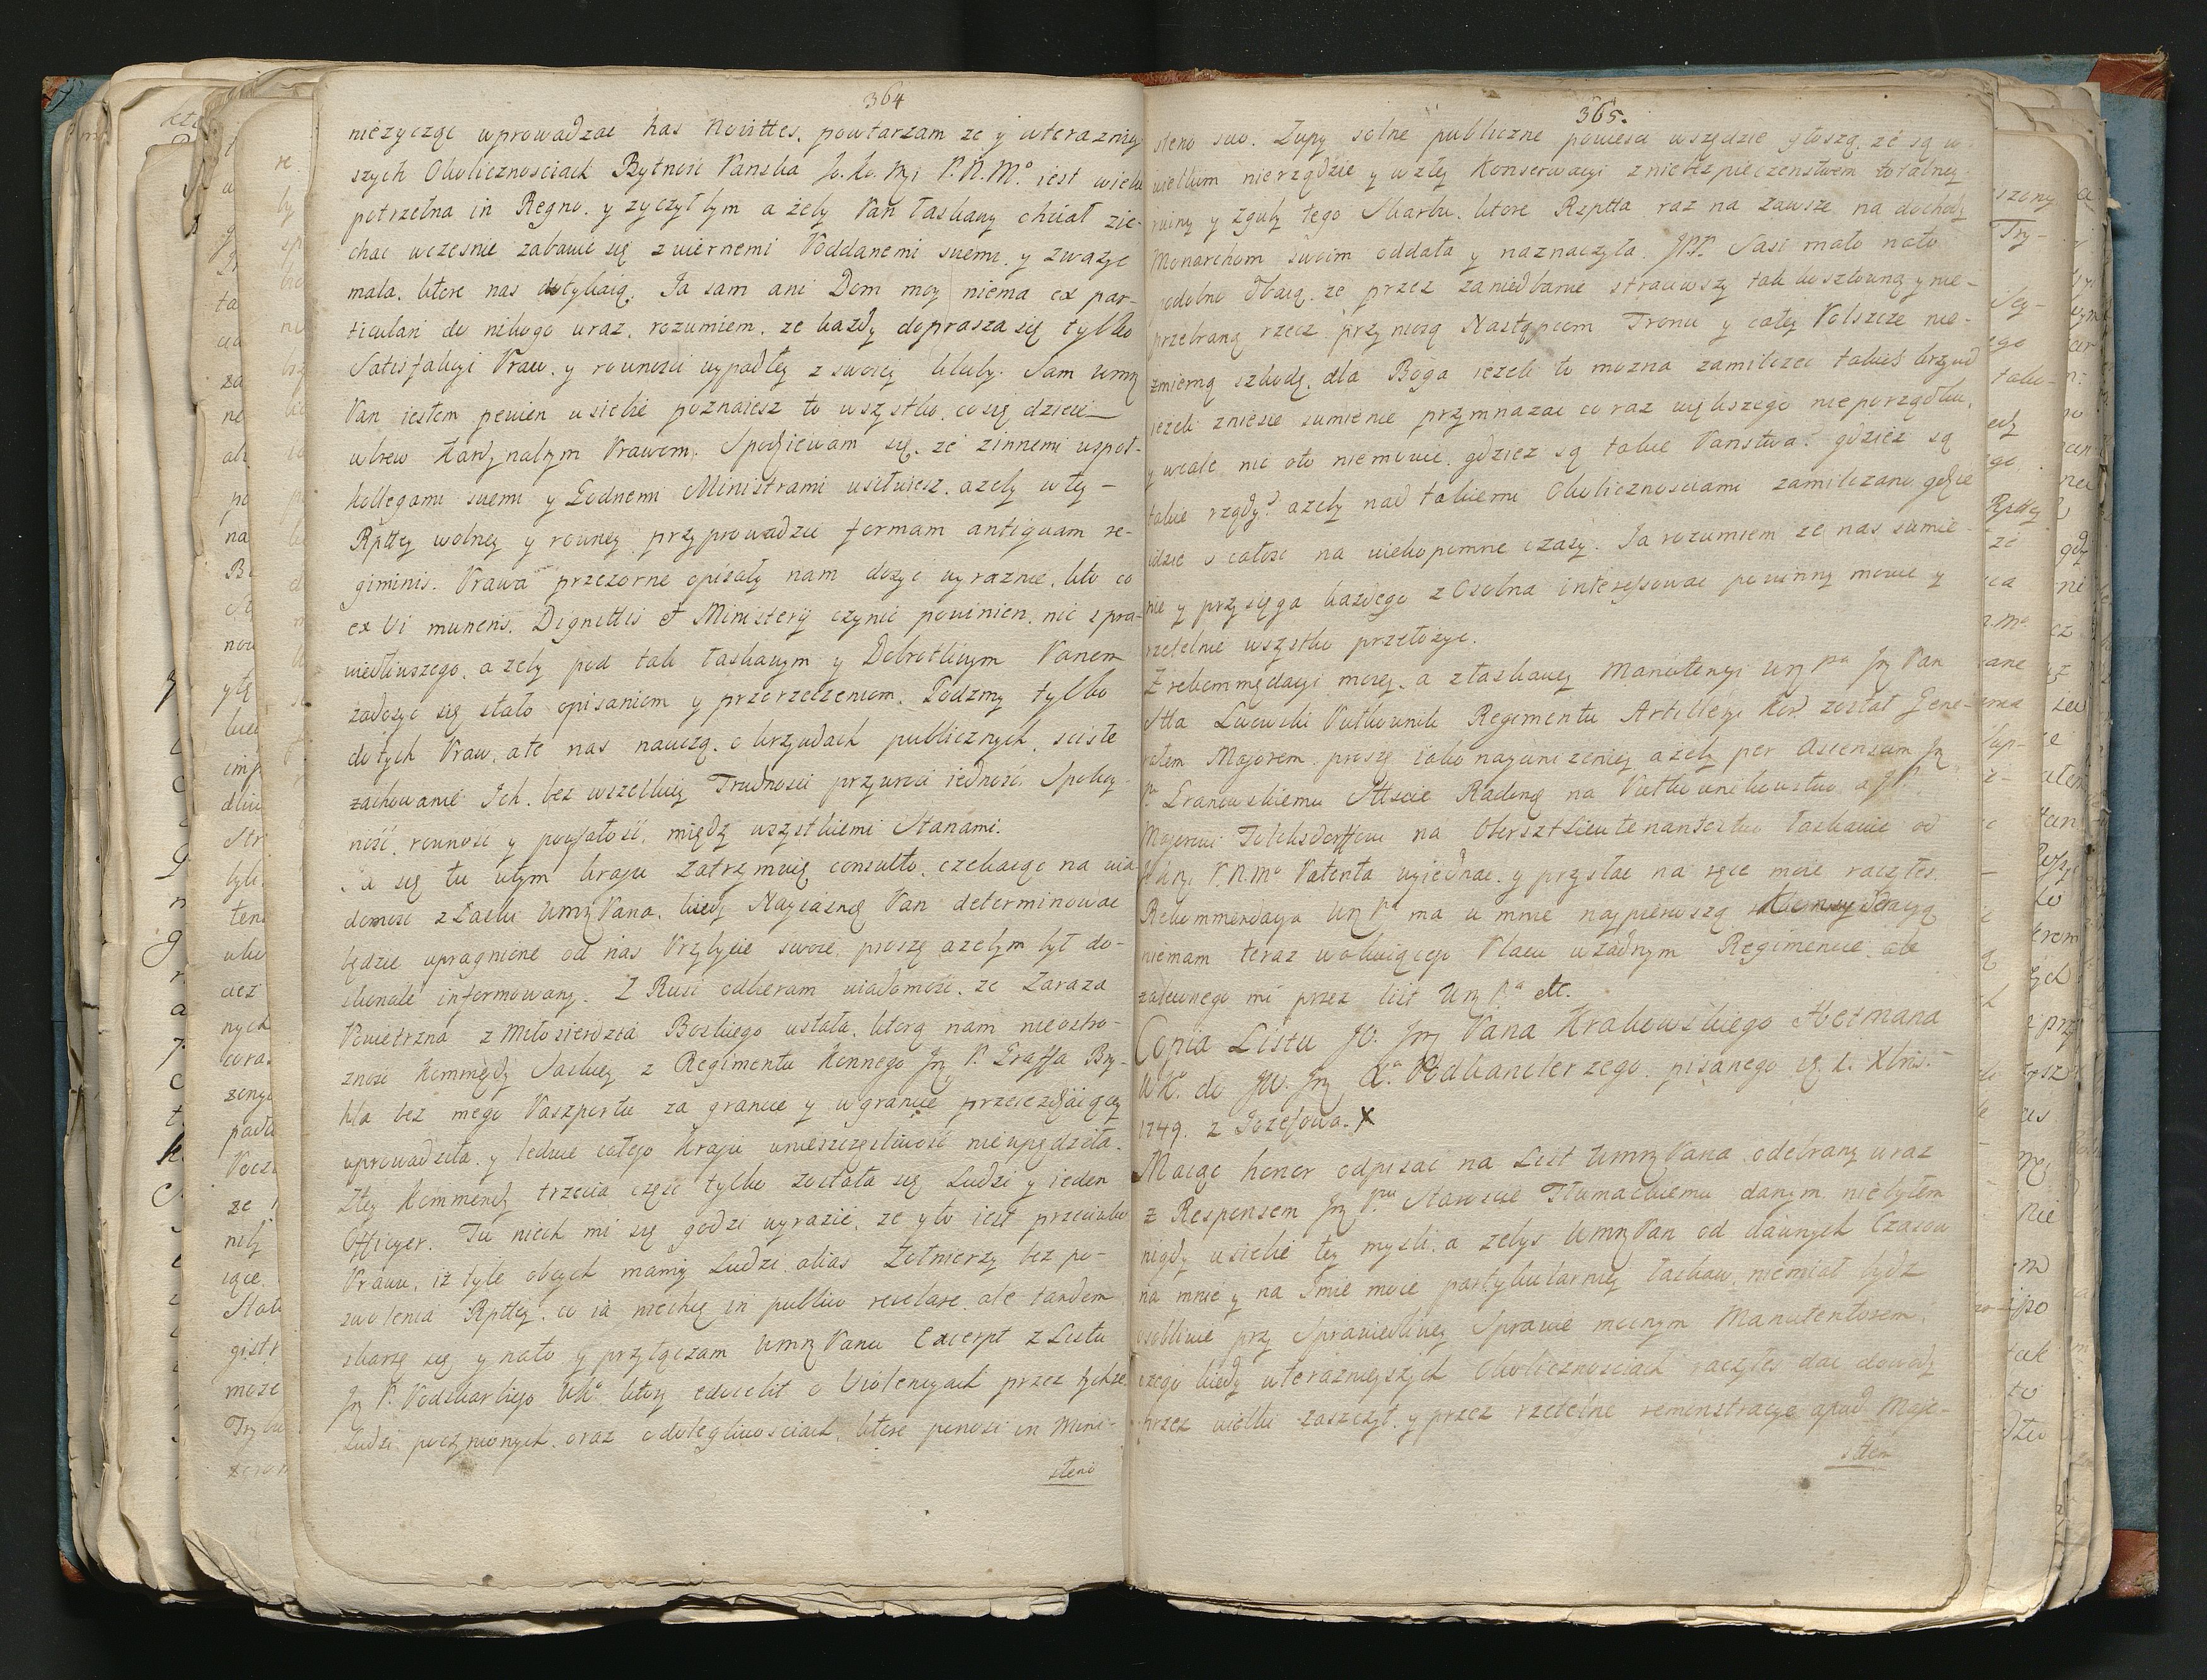 364
nieżyczę wprowadzac has Novittes. powtarzam ze y wteraznieÿ-
szych Okolicznosciach Bytność Pańska Jo. Ko. Mci P. N. Mo. iest wielce
potrzebna in Regno. y zyczył bym a żeby Pan łaskawy chciał zie-
chac wczesnie zabawic się z wiernemi Poddanemi swemi. y zwazyc
mala. ktore nas dotykaią. Ja sam ani Dom moy niema ex par-
ticulari do nikogo uraz, rozumiem, ze kazdy doprasza się tylko
Satisfakcyi Praw. y rownosci wypadłey z swoiey kluby. Sam wmę
Pan iestem pewien usiebie poznaiesz to wszystko. co się dzieie
wbrew Kardynalnym Prawom. Spodziewam się. ze zinnemi wspoł-
kollegami swemi y Godnemi Ministrami usiłuiesz. azeby w tey
Rpttey wolney y rowney przyprowadzic formam antiquam re-
giminis. Prawa przezorne opisały nam dosyc wyraznie. kto co
ex Vi muneris. Dignittis et Ministerij czynic powinien. nic spra-
wiedliwszego. a zeby pod tak łaskawym y Dobrotliwym Panem
zadosyc się stało opisaniom y przyrzeczeniom. Godzmy tylko
do tych Praw, ale nas nauczą. o krzywdach publicznych. scisłe
zachowanie Ich. bez wszelkiey Trudnosci przywroci iedność. Spokoy-
ność. rowność y poufałość. między wszystkiemi Stanami.
Ja się tu wtym kraju zatrzymuię consulto. czekaiąc na wia
domosc z Łaski WmęPana. kiedy Nayiasnieÿ Pan determinowac
będzie upragnione od nas Przybycie swoie. proszę azebym był do-
skonale informowany. Z Rusi odbieram wiadomosc. ze Zaraza
Powietrzna z Miłosierdzia Boskiego ustała. ktorą nam nieostro-
znosc Kommędy Saskiey z Regimentu Konnego Jmę P. Graffa Bry-
hla bez mego Paszportu za granice y w granice przeiezdzaiącey
wprowadziła. y ledwie całego Kraju w nieszczęsliwość niewpędziła.
Ztey Kommendy trzecia część tylko została się Ludzi y ieden
Officyer. Tu niech mi się godzi wyrazic. ze y to iest przeciwko
Prawu, iz tyle obcych mamy Ludzi alias Zołnierzy bez po-
zwolenia Rpttey. co ia niechcę in publico revelare. ale tandem
skarzę się y nato y przyłączam WmęPanu Excerpt z Listu
Jmę P. Podskarbiego WKo. ktory edocebit o Violencyach przez tychze
Ludzi poczynionych. oraz o dolegliwosciach. ktore ponosi in Mini-
sterio
365.
sterio suo. Zupy solne publiczne powiesci wszędzie głoszą. ze są w
wielkim nierządzie y w złey Konserwacyi z niebezpieczenstwem totalney
ruiny y zguby tego Skarbu. ktore Rzptta raz na zawsze na dochody
Monarchom swoim oddała y naznaczyła. JPP. Sasi mało nato
podobno dbaią. ze przez zaniedbanie straciwszy tak kosztowną y nie-
przebraną rzecz przyniosą Następcom Tronu y całey Polszcze nie-
zmierną szkodę. dla Boga iezeli to mozna zamilczec takież krzywd
iezeli zniesie sumienie przymnazac coraz większego nieporządku.
y wcale nic oto niemowic. gdziez są takie Panstwa? gdziez są
takie rządy? azeby nad takiemi Okolicznosciami zamilczano gdzie
idzie o całosc na wiekopomne czasy. Ja rozumiem ze nas sumie-
nie y przysięga kazdego z Osobna interessowac powinny mowic y
rzetelnie wszystko przełozyc.
Z rekommędacyi moiey. a złaskawey Manutenyi Wmę Pa Jmę Pan
Stta Lwowski Pułkownik Regimentu Artilleryi Kor. został Gene-
rałem Majorem. proszę iako nayunizeniey azeby per Ascensum Jmę
Pu Granowskiemu Stście Radoną na Pułkownikowstwo a JP.
Majorowi na Obersztleutenantostwo łaskawie od
J. Ko. Mci P. N. Mo Patenta wyiednac. y przysłac na ręce moie raczyłes.
Rekommendacya Wmę Pa ma u mnie naypierwszą
niemam teraz wakuiącego Placu wżadnym Regimencie. ale
zaleconego mi przez list Wmę Pa etc.
Copia Listu JO. Jmę Pana Krakowskiego Hetmana
WKo. do JW. Jmę Xa. Podkanclerzego. pisanego Xbris.
1749. z Jozefowa. X
Maiąc honor odpisac na List WmęPana odebrany wraz
z Responsem Jmę Pu Staroscie Tłumackiemu danym. niebyłem
nigdy usiebie tey mysli. a zebys WmęPan od dawnych Czasow
na mnie y na Imie moie partykularniey łaskaw. niemiał bydz
osobliwie przy Sprawiedliwey Sprawie mocnym Manutentorem.
czego kiedy wteraznieyszych Okolicznosciach raczyłes dac dowody
przez wielki zaszczyt. y przez rzetelne remonstracye apud Maje-
statem